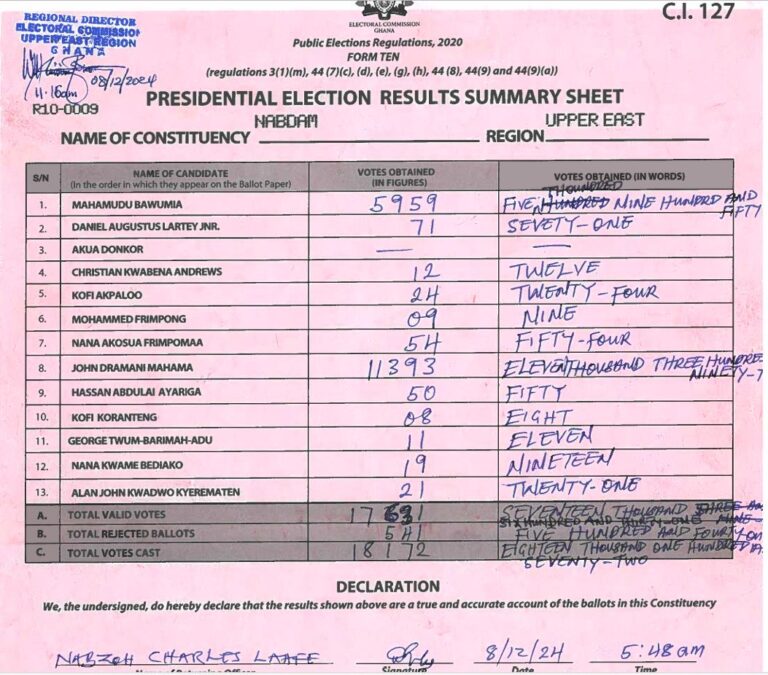 C.I. 127
REGIONAL DIRECTOR
ELECTORAL COMMISSION
UPPER EAST REGION
GHANA
08/12/2024
11.16am
R10-0009
ELECTORAL COMMISSION
GHANA
Public Elections Regulations, 2020
FORM TEN
(regulations 3(1)(m), 44 (7)(c), (d), (e), (g), (h), 44 (8), 44(9) and 44(9)(a))
PRESIDENTIAL ELECTION RESULTS SUMMARY SHEET
NAME OF CONSTITUENCY NABDAM REGION UPPER EAST
S/N NAME OF CANDIDATE (In the order in which they appear on the Ballot Paper) VOTES OBTAINED (IN FIGURES) VOTES OBTAINED (IN WORDS)
1. MAHAMUDU BAWUMIA 5959 FIVE HUNDRED THOUNDRED NINE HUNDRD AND FIFTY
2. DANIEL AUGUSTUS LARTEY JNR. 71 SEVETY-ONE
3. AKUA DONKOR — —
4. CHRISTIAN KWABENA ANDREWS 12 TWELVE
5. KOFI AKPALOO 24 TWENTY-FOUR
6. MOHAMMED FRIMPONG 09 NINE
7. NANA AKOSUA FRIMPOMAA 54 FIFTY-FOUR
8. JOHN DRAMANI MAHAMA 11393 ELEVENTHOUSAND THREE HUNDRE NINETY-T
9. HASSAN ABDULAI AYARIGA 50 FIFTY
10. KOFI KORANTENG 08 EIGHT
11. GEORGE TWUM-BARIMAH-ADU 11 ELEVEN
12. NANA KWAME BEDIAKO 19 NINETEEN
13. ALAN JOHN KWADWO KYEREMATEN 21 TWENTY-ONE
A. TOTAL VALID VOTES 17631 SEVENTEEN THOUSAND THREE SIX HUNDRED AND THIRTY-ONE NINE
B. TOTAL REJECTED BALLOTS 541 FIVE HUNDRED AND FOURTY ON
C. TOTAL VOTES CAST 18172 EIGHTEEN THOUSAND ONE HUNDRED SEVENTY-TWO
DECLARATION
We, the undersigned, do hereby declare that the results shown above are a true and accurate account of the ballots in this Constituency
NABZOH CHARLES LAAFE 8/12/24 5:48am
Signature Date Time